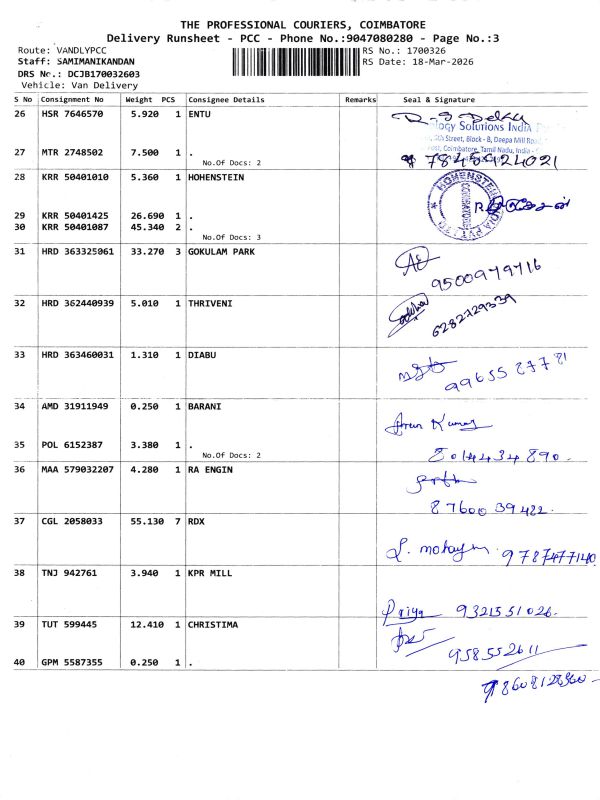 THE PROFESSIONAL COURIERS, COIMBATORE
Delivery Runsheet - PCC - Phone No.:9047080280 - Page No.:3
Route: VANDLYPCC RS No.: 1700326
Staff: SAMIMANIKANDAN RS Date: 18-Mar-2026
DRS No.: DCJB170032603
Vehicle: Van Delivery
S No Consignment No Weight PCS Consignee Details Remarks Seal & Signature
26 HSR 7646570 5.920 1 ENTU
logy Solutions India
5th Street, Block - B, Deepa Mill Road
Coimbatore, Tamil Nadu, India
27 MTR 2748502 7.500 1 .
No.Of Docs: 2
28 KRR 50401010 5.360 1 HOHENSTEIN
HOHENSTEIN INDIA PVT LTD
COIMBATORE
29 KRR 50401425 26.690 1 .
30 KRR 50401087 45.340 2 .
No.Of Docs: 3
31 HRD 363325061 33.270 3 GOKULAM PARK
9500979716
32 HRD 362440939 5.010 1 THRIVENI
6282729339
33 HRD 363460031 1.310 1 DIABU
9965587781
34 AMD 31911949 0.250 1 BARANI
Arun Kumar
35 POL 6152387 3.380 1 .
No.Of Docs: 2
8014434890.
36 MAA 579032207 4.280 1 RA ENGIN
8760039422.
37 CGL 2058033 55.130 7 RDX
9787477140
38 TNJ 942761 3.940 1 KPR MILL
Priya 9321551026.
39 TUT 599445 12.410 1 CHRISTIMA
958552611
40 GPM 5587355 0.250 1 .